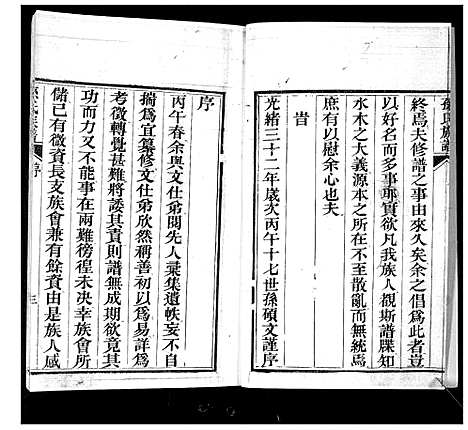 孫氏族譜
終焉夫修譜之事由來久矣余之倡爲此者豈
以好名而多事耶實欲凡我族人覩斯譜牒知
水木之大義源本之不忘不至散亂而無統焉
庶有以慰余心也夫
旹
光緒三十二年歲次丙午十七世孫碩文謹序
序
丙午春余與文仕弟閱先人彙集遺帙妄不自
揣爲宜纂修文仕弟欣然稱善初以爲易詳爲
考徵轉覺甚難將諉其責則譜無成期欲竟其
功而力又不能事在兩難徬徨未決幸族會所
儲已有微資長支族會兼有餘資由是族人咸
序
三